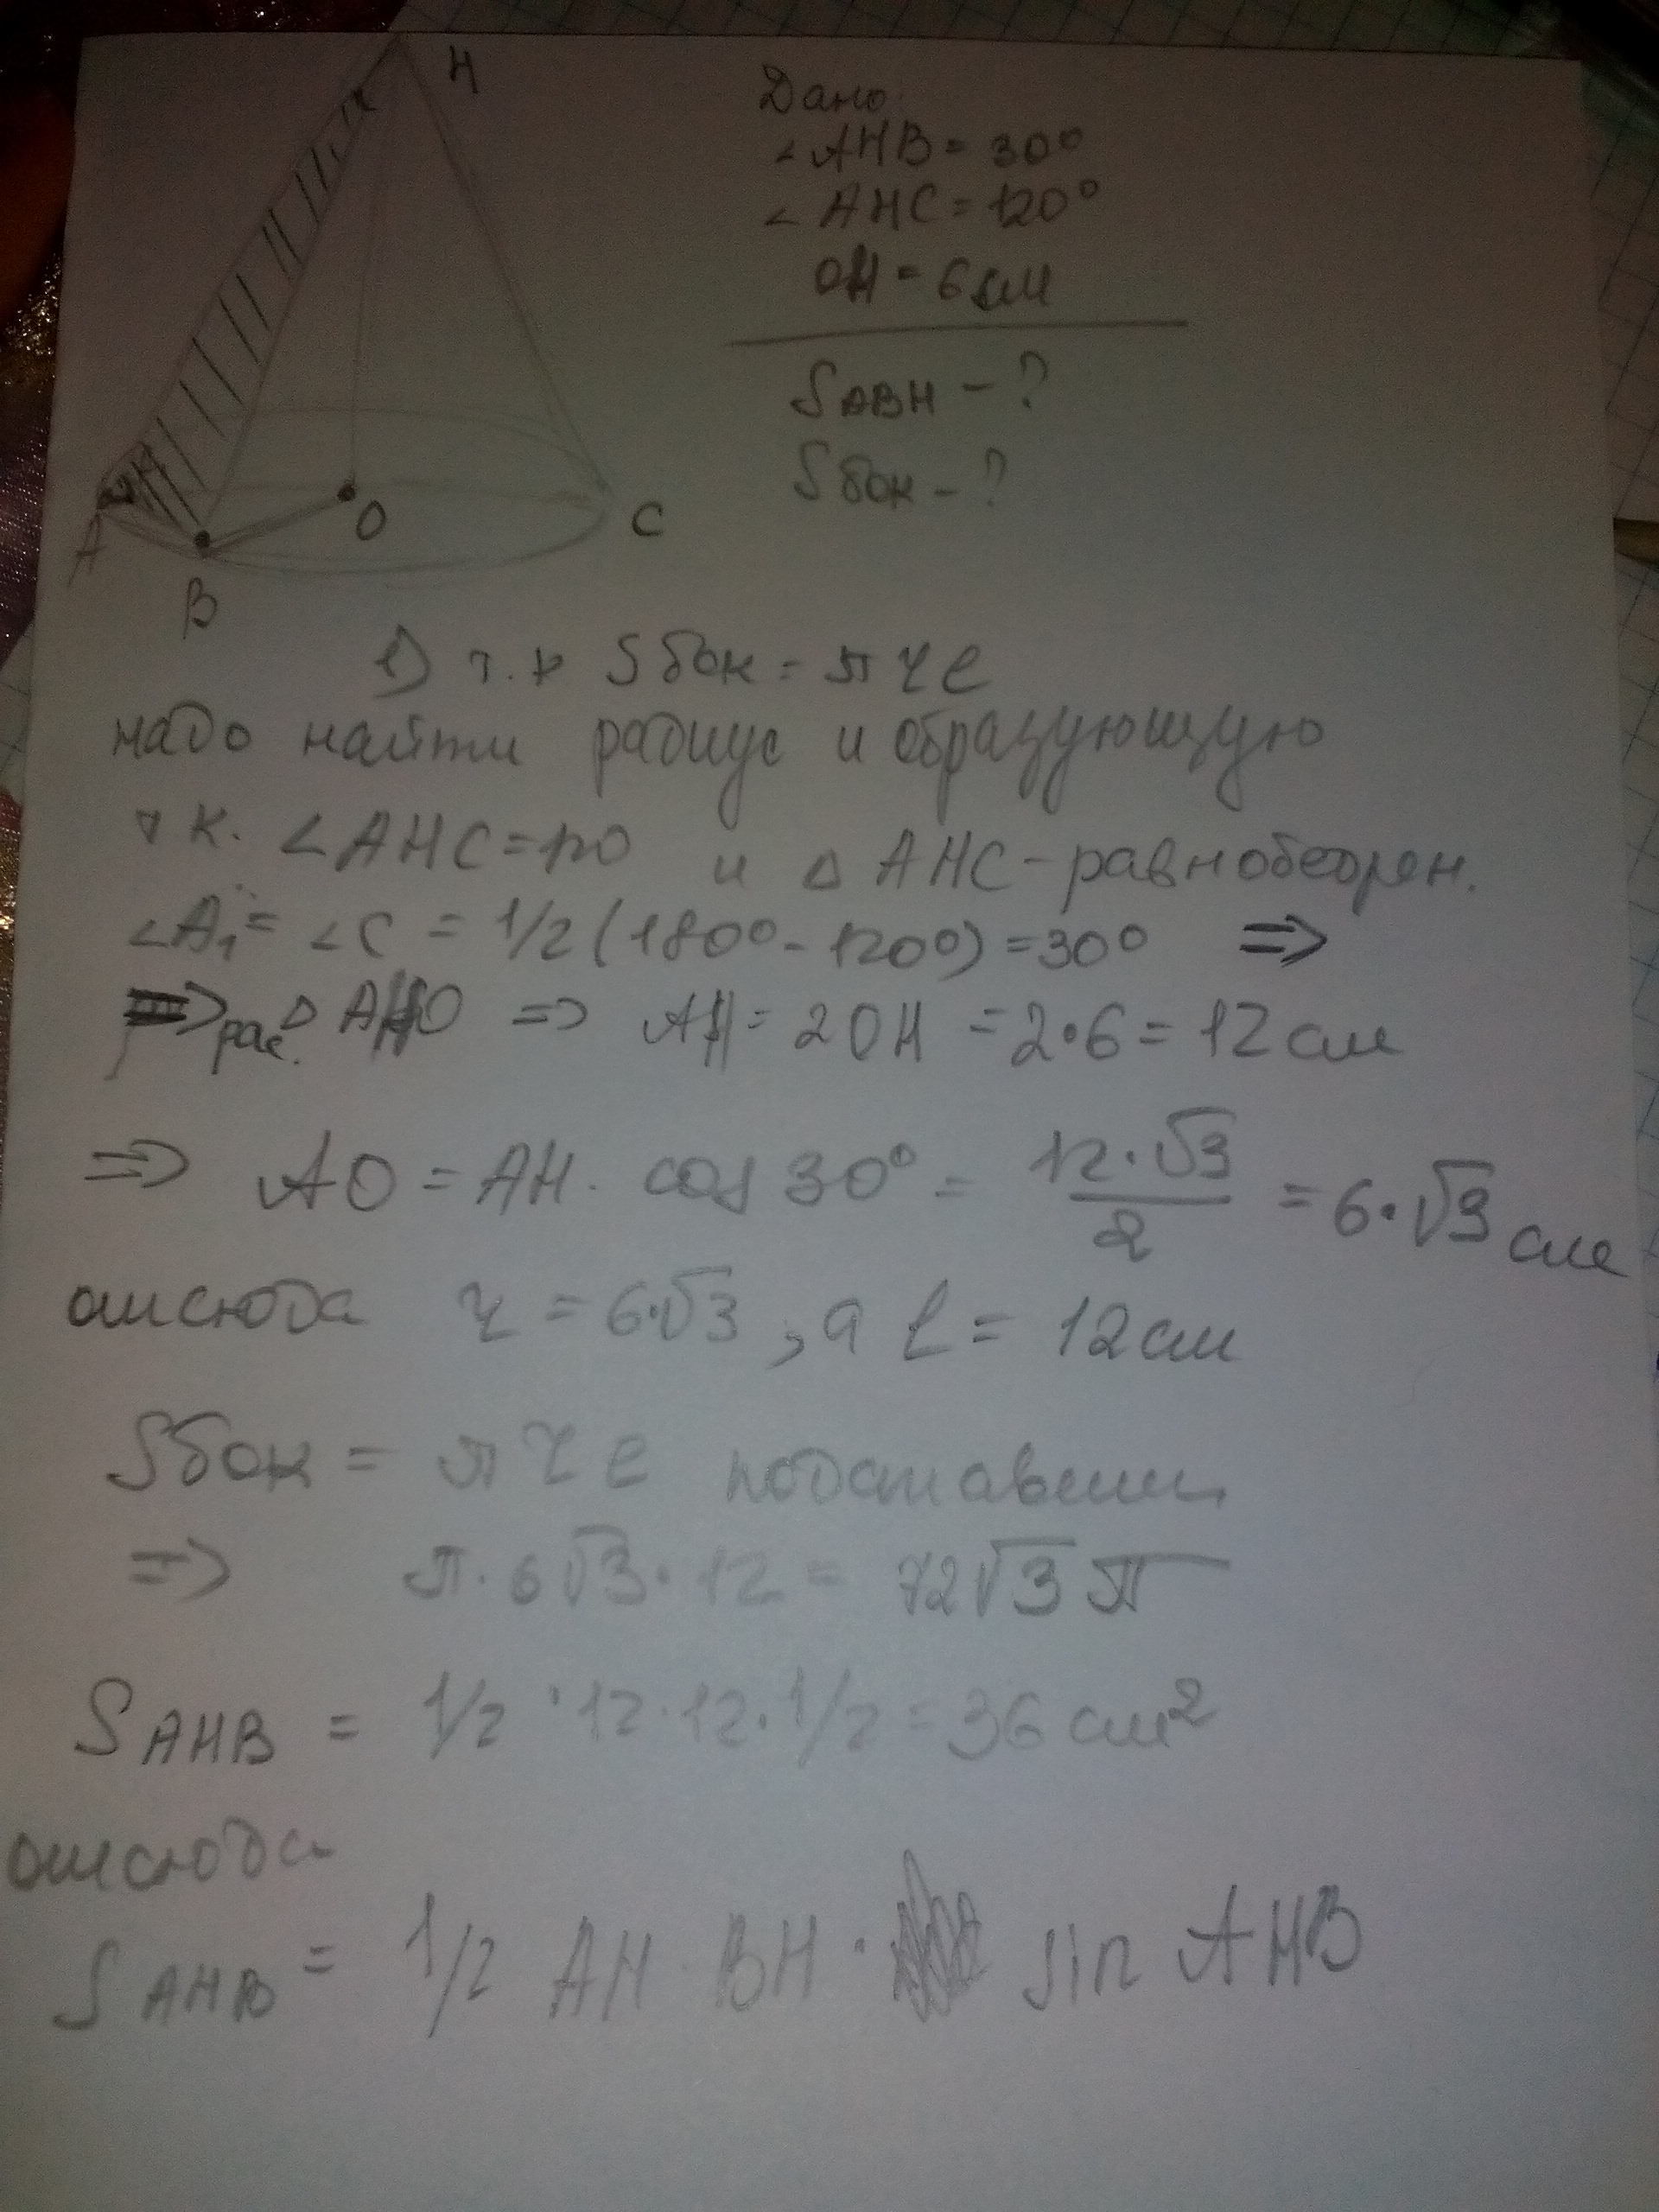 H
A
B
O
C
Дано
∠AHB = 30°
∠AHC = 120°
OH = 6 см
S ABH - ?
S бок - ?
1) т.к S бок = π r l
надо найти радиус и образующую
т к. ∠AHC = 120 и △ AHC - равнобедрен.
∠A₁ = ∠C = 1/2 (180° - 120°) = 30° ⇒
⇒ рас. △ AHO ⇒ AH = 2OH = 2·6 = 12 см
⇒ AO = AH · cos 30° = 12·√3/2 = 6·√3 см
отсюда r = 6·√3, а l = 12 см
S бок = π r l подставим
⇒ π · 6√3 · 12 = 72√3 π
S AHB = 1/2 · 12 · 12 · 1/2 = 36 см²
отсюда
S AHB = 1/2 AH · BH · sin AHB